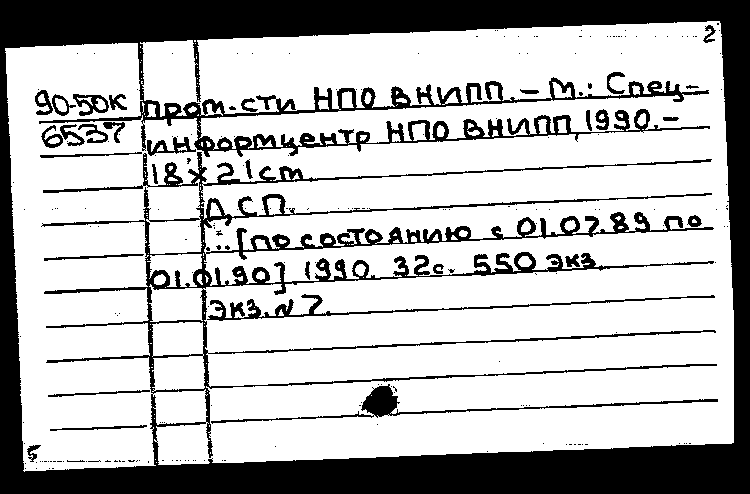 2
90-50К пром-сти НПО ВНИПП. – М.: Спец-
6537 информцентр НПО ВНИПП, 1990. –
18 х 21 cm.
ДСП.
...[по состоянию с 01.07.89 по
01.01.90]. 1990. 32с. 550 экз.
Экз. № 7.
5